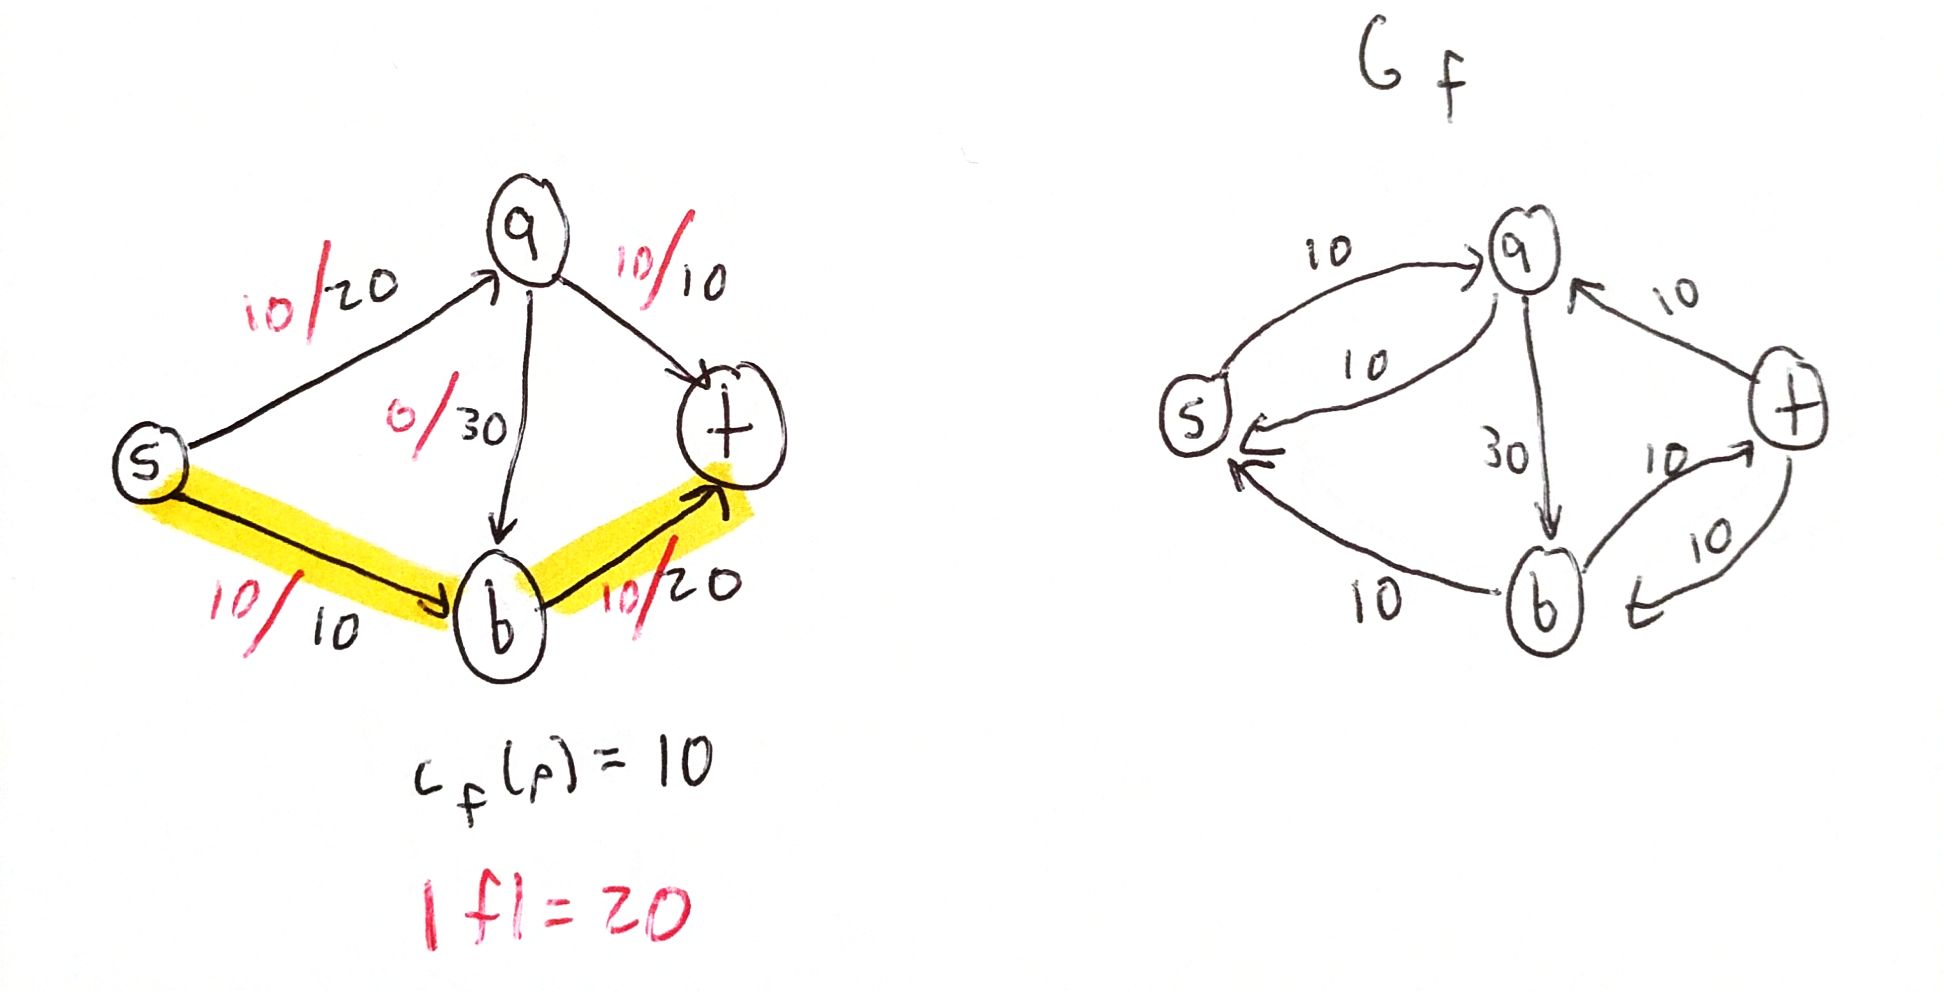 G f
a
10/20
10/10
0/30
s
t
10/10
b
10/20
c f (p) = 10
|f| = 20
10
a
10
10
s
t
30
10
10
10
b